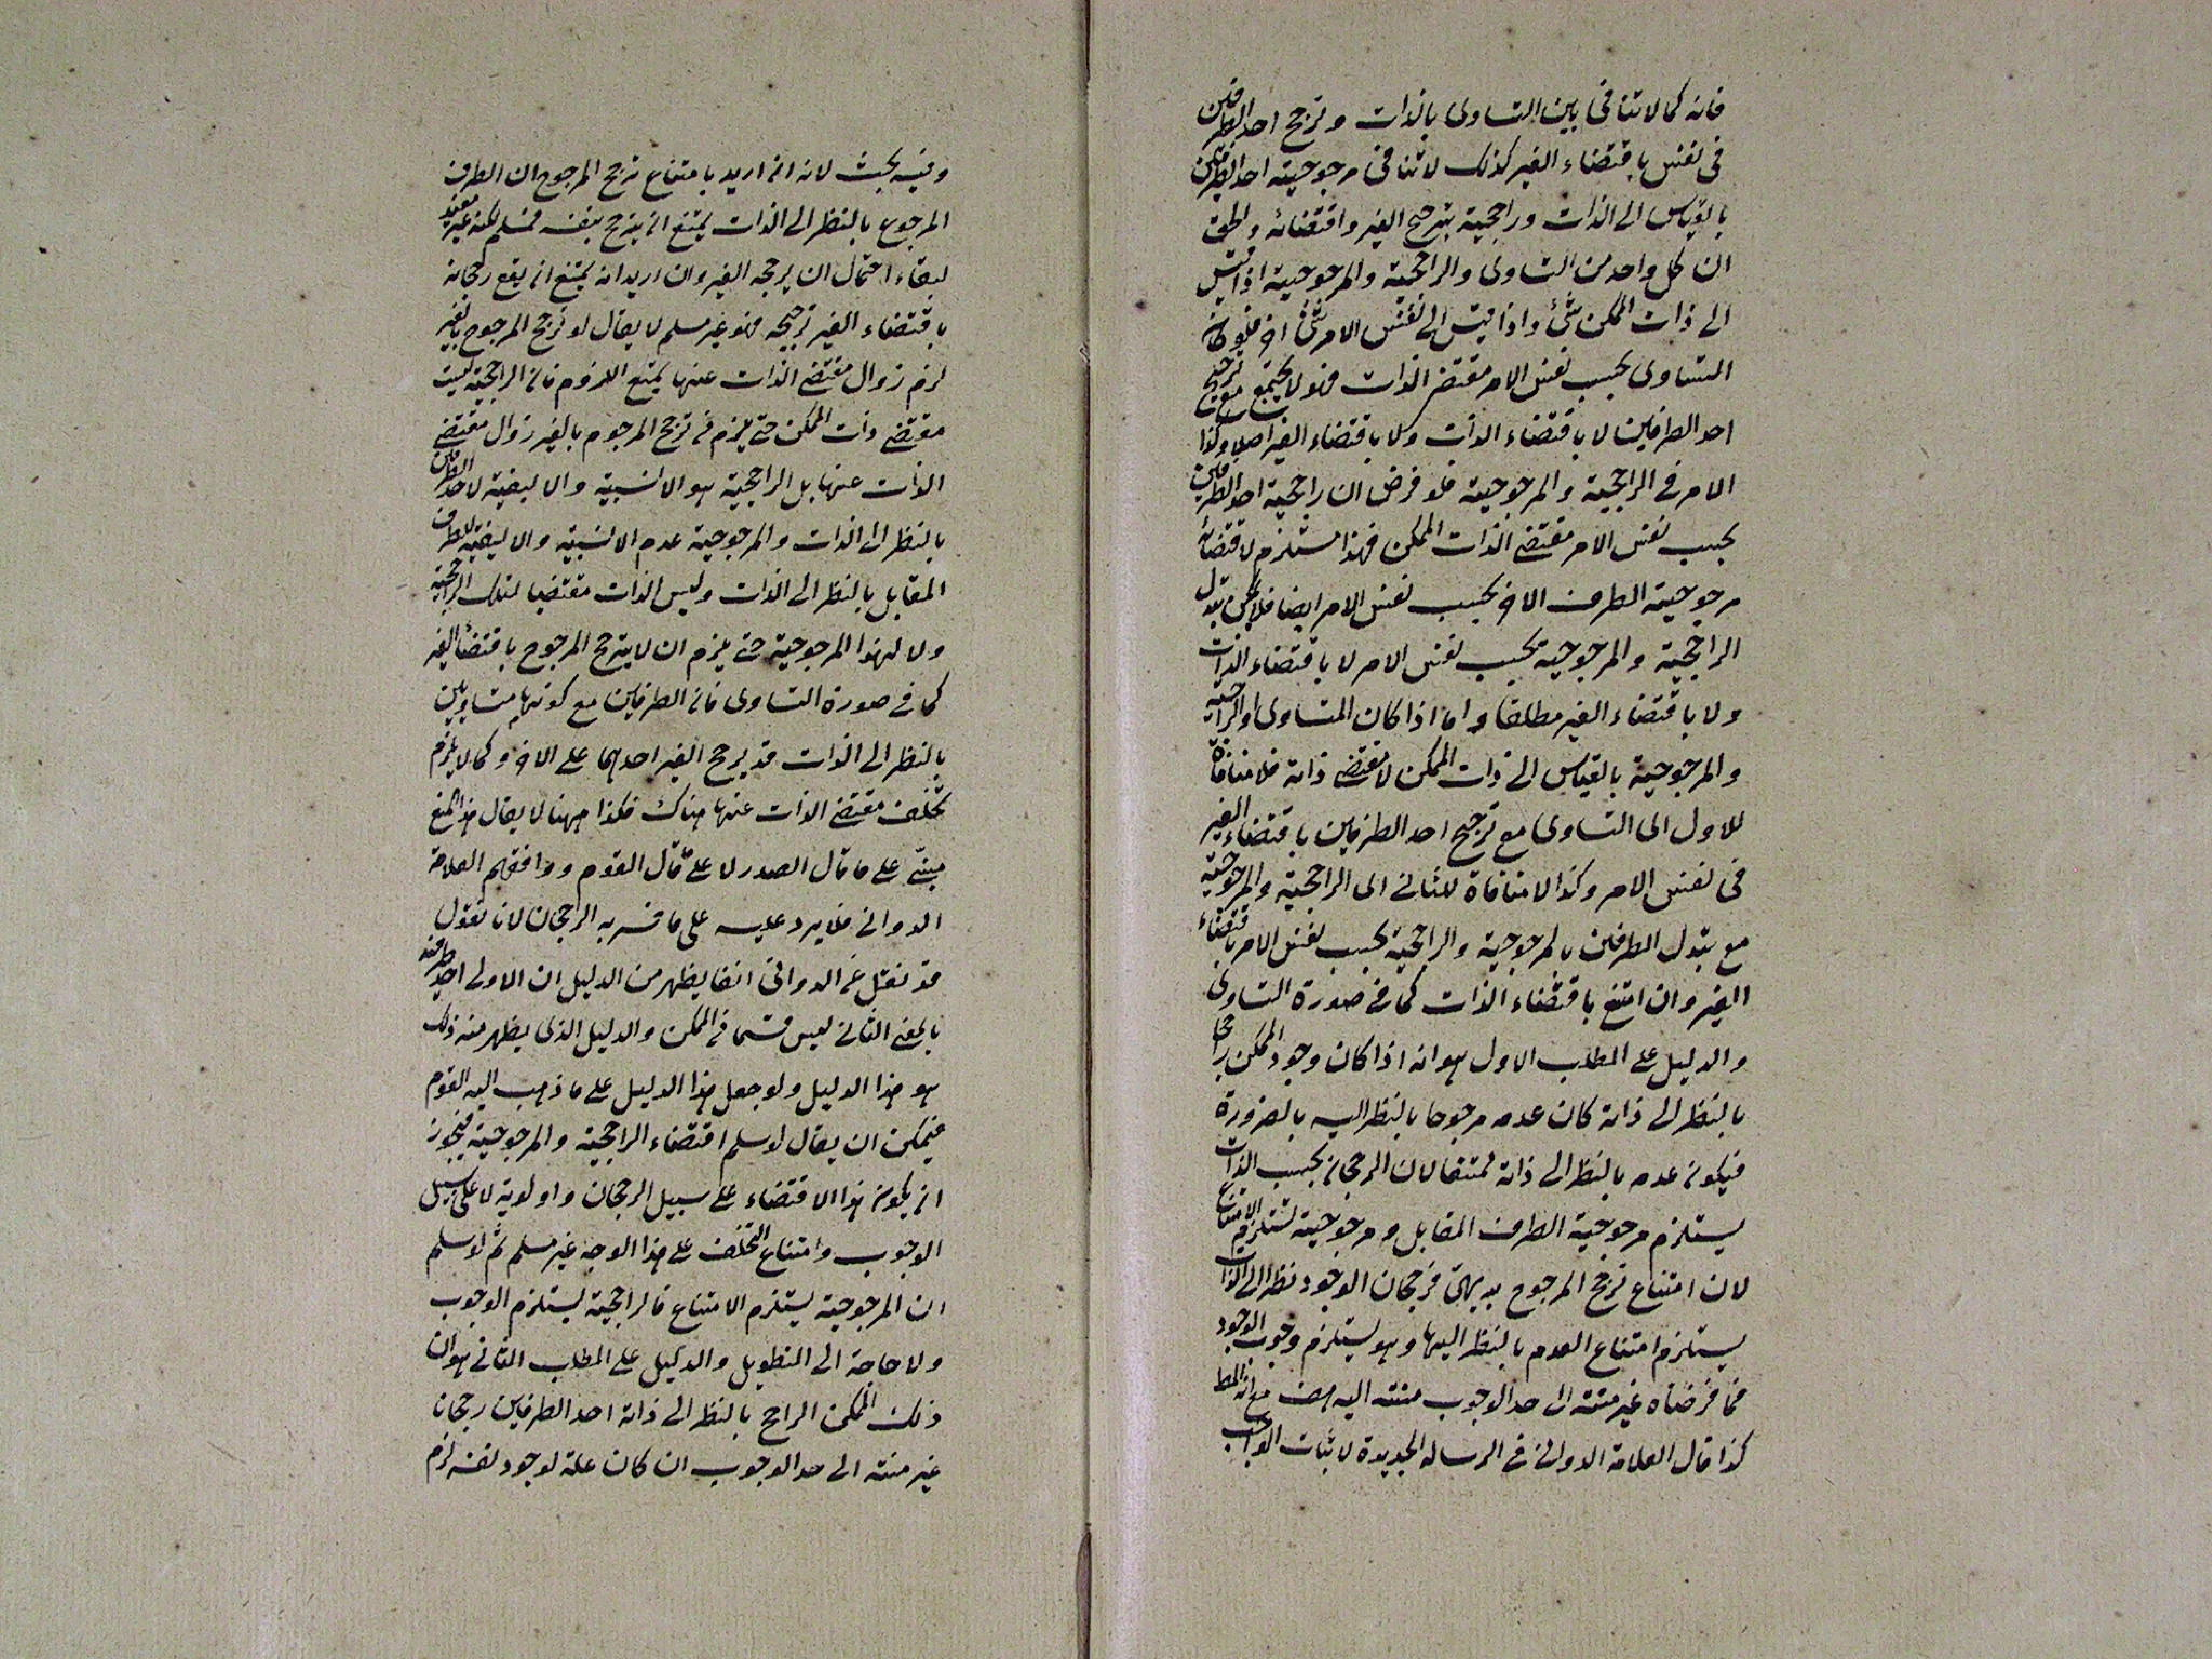 فانه كما لا تنافى بين التساوى بالذات وترجح احد الطرفين
فى نفس باقتضاء الغير كذلك لا تنافى مرجوحية احد الطرفين
بالقياس الى الذات وراجحية بترجيح الغير واقتضائه والحق
ان كل واحد من التساوى والراجحية والمرجوحية اذا قيس
الى ذات الممكن شئ واذا قيس الى نفس الامر شئ اخر فلو كان
التساوى بحسب نفس الامر مقتضى الذات فهو لا يجتمع مع ترجيح
احد الطرفين لا باقتضاء الذات ولا باقتضاء الغير اصلا وكذا
الامر فى الراجحية والمرجوحية فلو فرض ان راجحية احد الطرفين
بحسب نفس الامر مقتضى الذات الممكن فهذا مستلزم لاقتضائه
مرجوحية الطرف الاخر بحسب نفس الامر ايضا فلا يمكن تبدل
الراجحية والمرجوحية بحسب نفس الامر لا باقتضاء الذات
ولا باقتضاء الغير مطلقا واما اذا كان التساوى او الراجحية
والمرجوحية بالقياس الى ذات الممكن لا مقتضى ذاته فلا منافاة
للاول اى التساوى مع ترجيح احد الطرفين باقتضاء الغير
فى نفس الامر وكذا لا منافاة للثانى اى الراجحية والمرجوحية
مع تبدل الطرفين بالمرجوحية والراجحية بحسب نفس الامر باقتضاء
الغير وان امتنع باقتضاء الذات كما فى صورة التساوى
والدليل على المطلب الاول هو انه اذا كان وجود الممكن راجحا
بالنظر الى ذاته كان عدمه مرجوحا بالنظر اليه بالضرورة
فيكون عدمه بالنظر الى ذاته ممتنعا لان الرجحان بحسب الذات
يستلزم مرجوحية الطرف المقابل ومرجوحية تستلزم الامتناع
لان امتناع ترجح المرجوح بديهى فرجحان الوجود نظرا الى الذات
يستلزم امتناع العدم بالنظر اليها وهو يستلزم وجوب الوجود
فما فرضناه غير منته الى حد الوجوب منته اليه هف مع انه المط
كذا قال العلامة الدوانى فى الرسالة الجديدة لاثبات الواجب
وفيه بحث لانه ان اريد بامتناع ترجح المرجوح ان الطرف
المرجوح بالنظر الى الذات يمتنع ان يترجح بنفسه فمسلم لكنه غير مفيد
لبقاء احتمال ان يرجحه الغير وان اريد انه يمتنع ان يقع رجحانه
باقتضاء الغير ترجيحه فهو غير مسلم لا يقال لو ترجح المرجوح بالغير
لزم زوال مقتضى الذات عنها يمتنع اللزوم فان الراجحية ليست
مقتضى ذات الممكن حتى يلزم فى ترجح المرجوح بالغير زوال مقتضى
الذات عنها بل الراجحية هو الانسبية والاليقية لاحد الطرفين
بالنظر الى الذات والمرجوحية عدم الانسبية والاليقية للطرف
المقابل بالنظر الى الذات وليس الذات مقتضيا لتلك الراجحية
ولا لهذا المرجوحية حتى يلزم ان لا يترجح المرجوح باقتضاء الغير
كما فى صورة التساوى فان الطرفين مع كونهما متساويين
بالنظر الى الذات قد يرجح الغير احدهما على الاخر وكما لا يلزم
تخلف مقتضى الذات عنها هناك فكذا ههنا لا يقال هذا المنع
مبنى على ما قال الصدر لا على ما قال القوم ووافقهم العلامة
الدوانى فلا يرد عليه على ما فسر به الرجحان لانا نقول
قد نقل عن الدوانى انفا يظهر من الدليل ان الاولى احد طرفيه
بالمعنى الثانى ليس قسما فى الممكن والدليل الذى يظهر منه ذلك
هو هذا الدليل ولو جعل هذا الدليل على ما ذهب اليه القوم
فيمكن ان يقال لو سلم اقتضاء الراجحية والمرجوحية فيجوز
ان يكون هذا الاقتضاء على سبيل الرجحان واولوية لا على سبيل
الوجوب وامتناع التخلف على هذا الوجه غير مسلم ثم لو سلم
ان المرجوحية يستلزم الامتناع فالراجحية يستلزم الوجوب
ولا حاجة الى التطويل والدليل على المطلب الثانى هو ان
ذلك الممكن الراجح بالنظر الى ذاته احد الطرفين رجحانا
غير منته الى حد الوجوب ان كان علة لوجود نفسه لزم